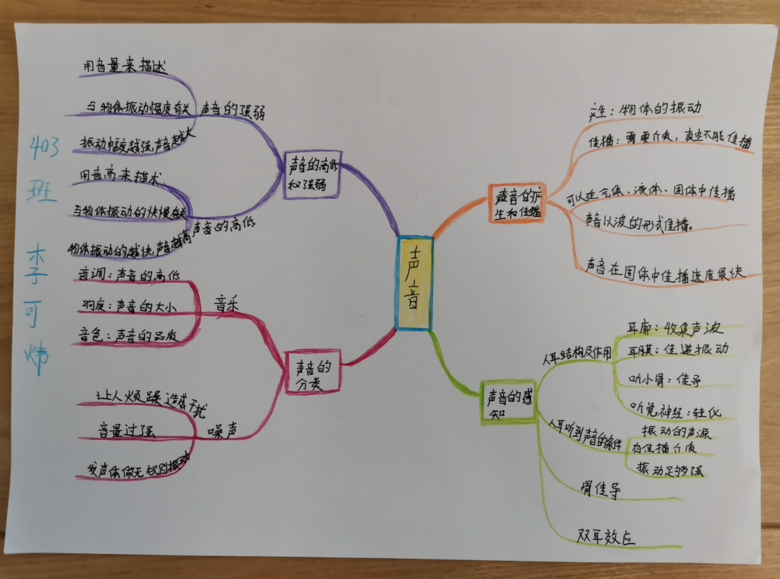 403
班
李
可
炜
声音
声音的高低
和强弱
声音的强弱
用音量来描述
与物体振动幅度有关
振动幅度越强,声音越大
声音的高低
用音高来描述
与物体振动的快慢有关
物体振动的越快,声音越高
声音的
分类
音乐
音调:声音的高低
响度:声音的大小
音色:声音的品质
噪声
让人烦躁 造成干扰
音量过强
发声体做无规则振动
声音的产
生和传播
产生:物体的振动
传播:需要介质,真空不能传播
可以在气体、液体、固体中传播
声音以波的形式传播。
声音在固体中传播速度最快
声音的感
知
人耳结构及作用
耳廓:收集声波
耳膜:传递振动
听小骨:传导
听觉神经:转化
人耳听到声音的条件
振动的声源
有传播介质
振动足够强
骨传导
双耳效应